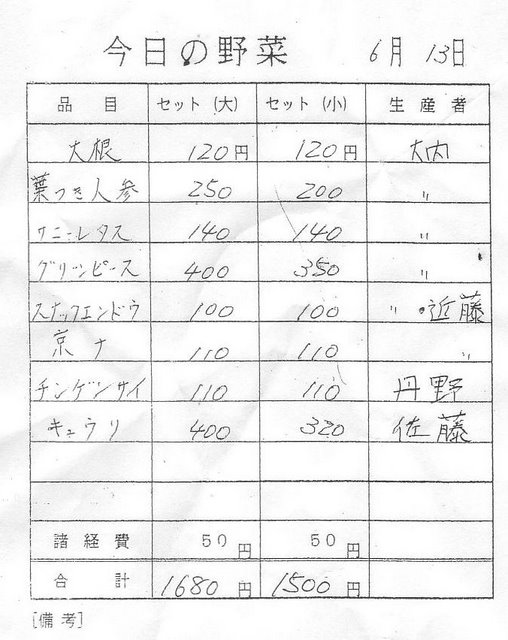 今日の野菜 6月 13日
品 目 セット(大) セット(小) 生産者
大根 120円 120円 大内
葉つき人参 250 200 〃
サニーレタス 140 140 〃
グリーンピース 400 350 〃
スナックエンドウ 100 100 〃・近藤
京ナ 110 110 〃
チンゲンサイ 110 110 丹野
キュウリ 400 320 佐藤
諸経費 50円 50円
合 計 1680円 1500円
[備考]